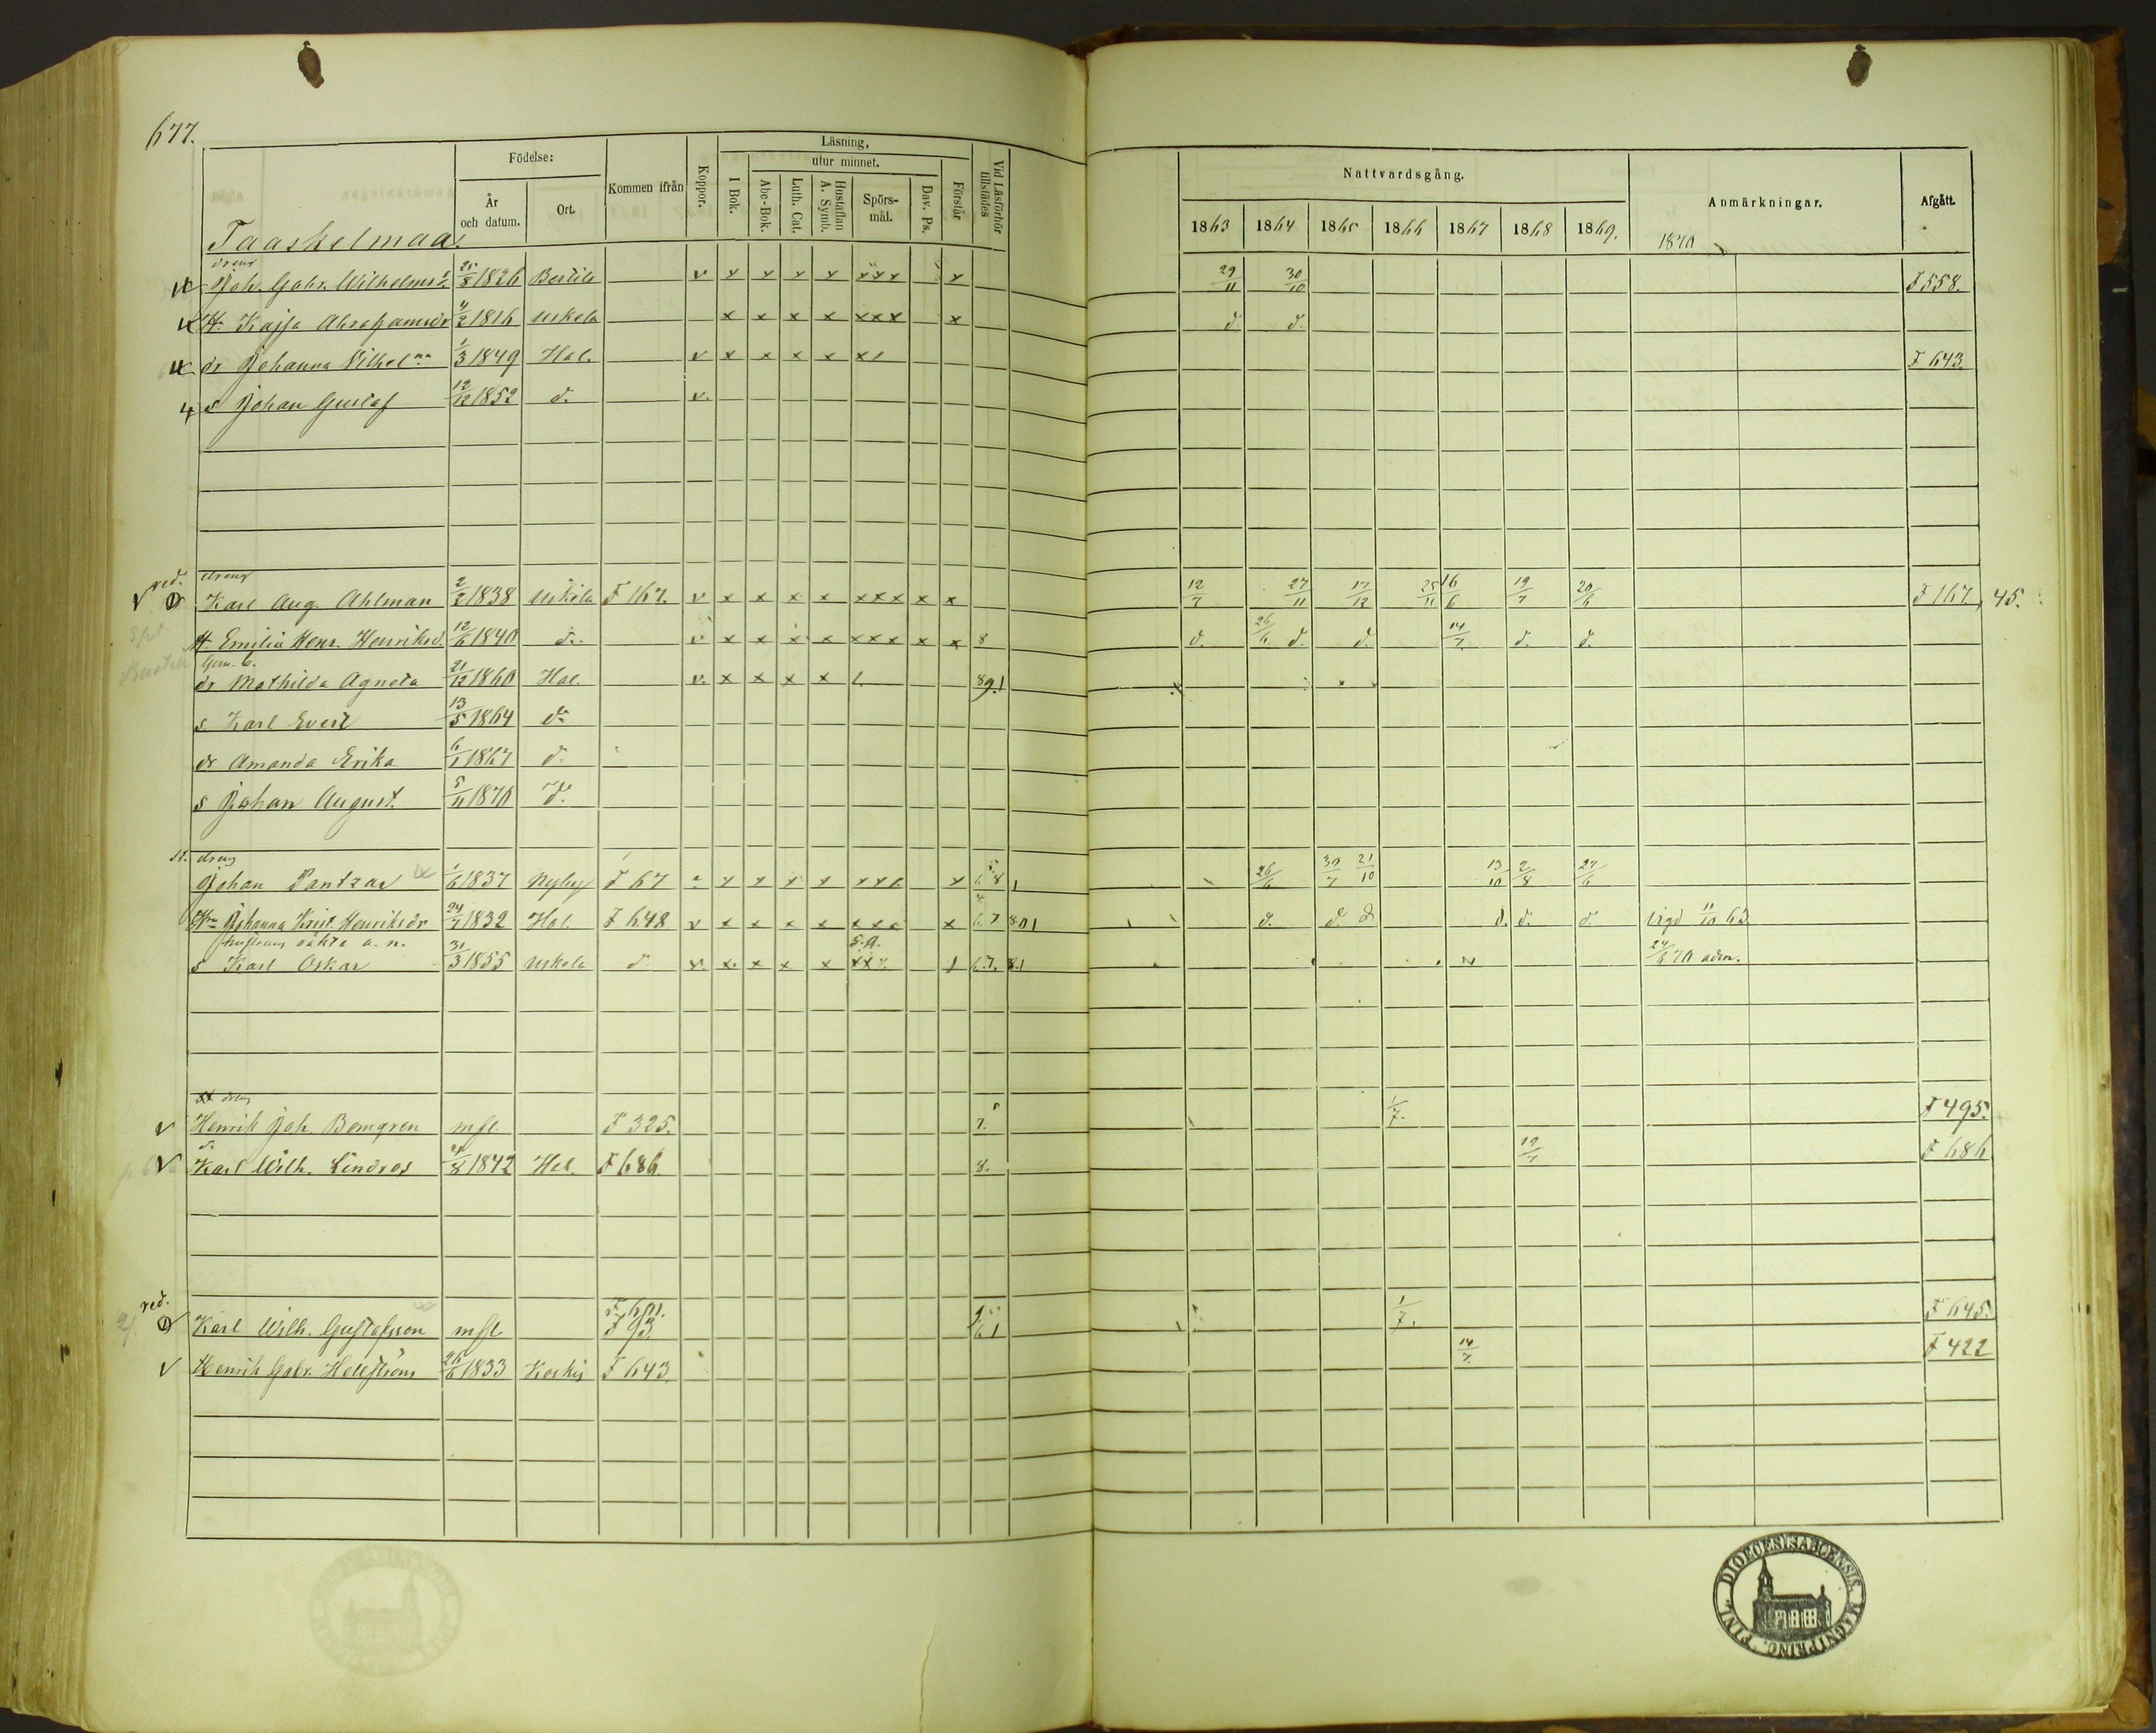 677.
Födelse: Kommen ifrån Koppor. Läsning, Vid Läsförhör tillstädes Nattvardsgång. Anmärkningar. Afgått.
utur minnet.
År och datum. Ort. I Bok. Abc-Bok. Luth. Cat. Hustaflan A. Symb. Spörs-mål. Dav. Ps. Förstår
1863 1864 1865 1866 1867 1868 1869. 1870
Taaskelmaa.
dreng
Joh. Gabr. Wilhelmss. 25/8 1826 v x x x x xxx x 29/11 30/10 F 558.
H. Kajsa Abrahamsdr 4/2 1816 Uskela x x x x xxx x d. d.
dr Johanna Vilhel.na 1/3 1849 Hal. v x x x x x/ F 643.
s Johan Gustaf 12/12 1852 d. v.
red. dreng
Karl Aug. Ahlman 2/2 1838 Uskela F 167. v x x x x xxx x x 12/7 27/11 17/12 25/11 16/6 19/7 20/6 F 167, 45.
H. Emilia Henr. Henriksd. 12/6 1840 d. v x x x x xxx x x 8 d. 26/6 d. d. 14/7 d. d.
dr Mathilda Agneta 21/12 1860 Hal. v. x x x x /. 89.1
s. Karl Evert 13/5 1864 d.
dr Amanda Erika 6/1 1867 d.
s Johan August. 5/11 1870 d.
st. dreng
Johan Pantzar 1/6 1837 Nyby F 67 x x x x xx/. x 6 8 1 26/6 30/7 21/10 13/10 2/8 27/6
Hu Johanna Krist. Henriksdr 24/7 1832 Hal. F 648 v x x x x xxx x 6.7 801 d. d. d. d. d. d. Vigd 11/10 63
hustruns oäkta a. n. 5.A.
s Karl Oskar 31/3 1855 Uskela d. v. x. x x x xx/. / 6.7. 8.1 24/6 70 adm.
dreng
Henrik Joh. Bomgren mfl. F 325. 7. 1/7. F 495.
d.
Karl Wilh. Lindros 1842 Hal. F 686. 8. 19/7 F 686
red. F 601.
Karl Wilh. Gustafsson mfl F 93. 61 1/7. F 645.
Henrik Gabr. Hellström 26/6 1833 Koskis F 643 14/7. F 422
DIOECESIS ABOENSIS. MAGNI PRINC. FINL.